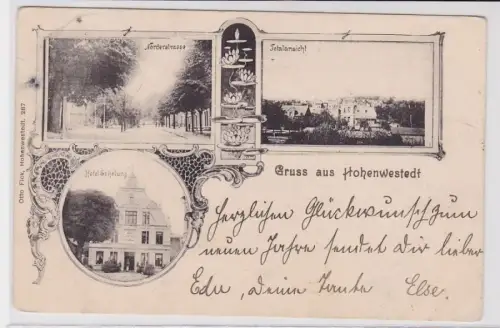 Norderstrasse
Totalansicht
Otto Fick, Hohenwestedt. 287
Gruss aus Hohenwestedt
Herzlichen Glückwunsch zum
neuen Jahre sendet Dir lieber
Edu, deine Tante Else.